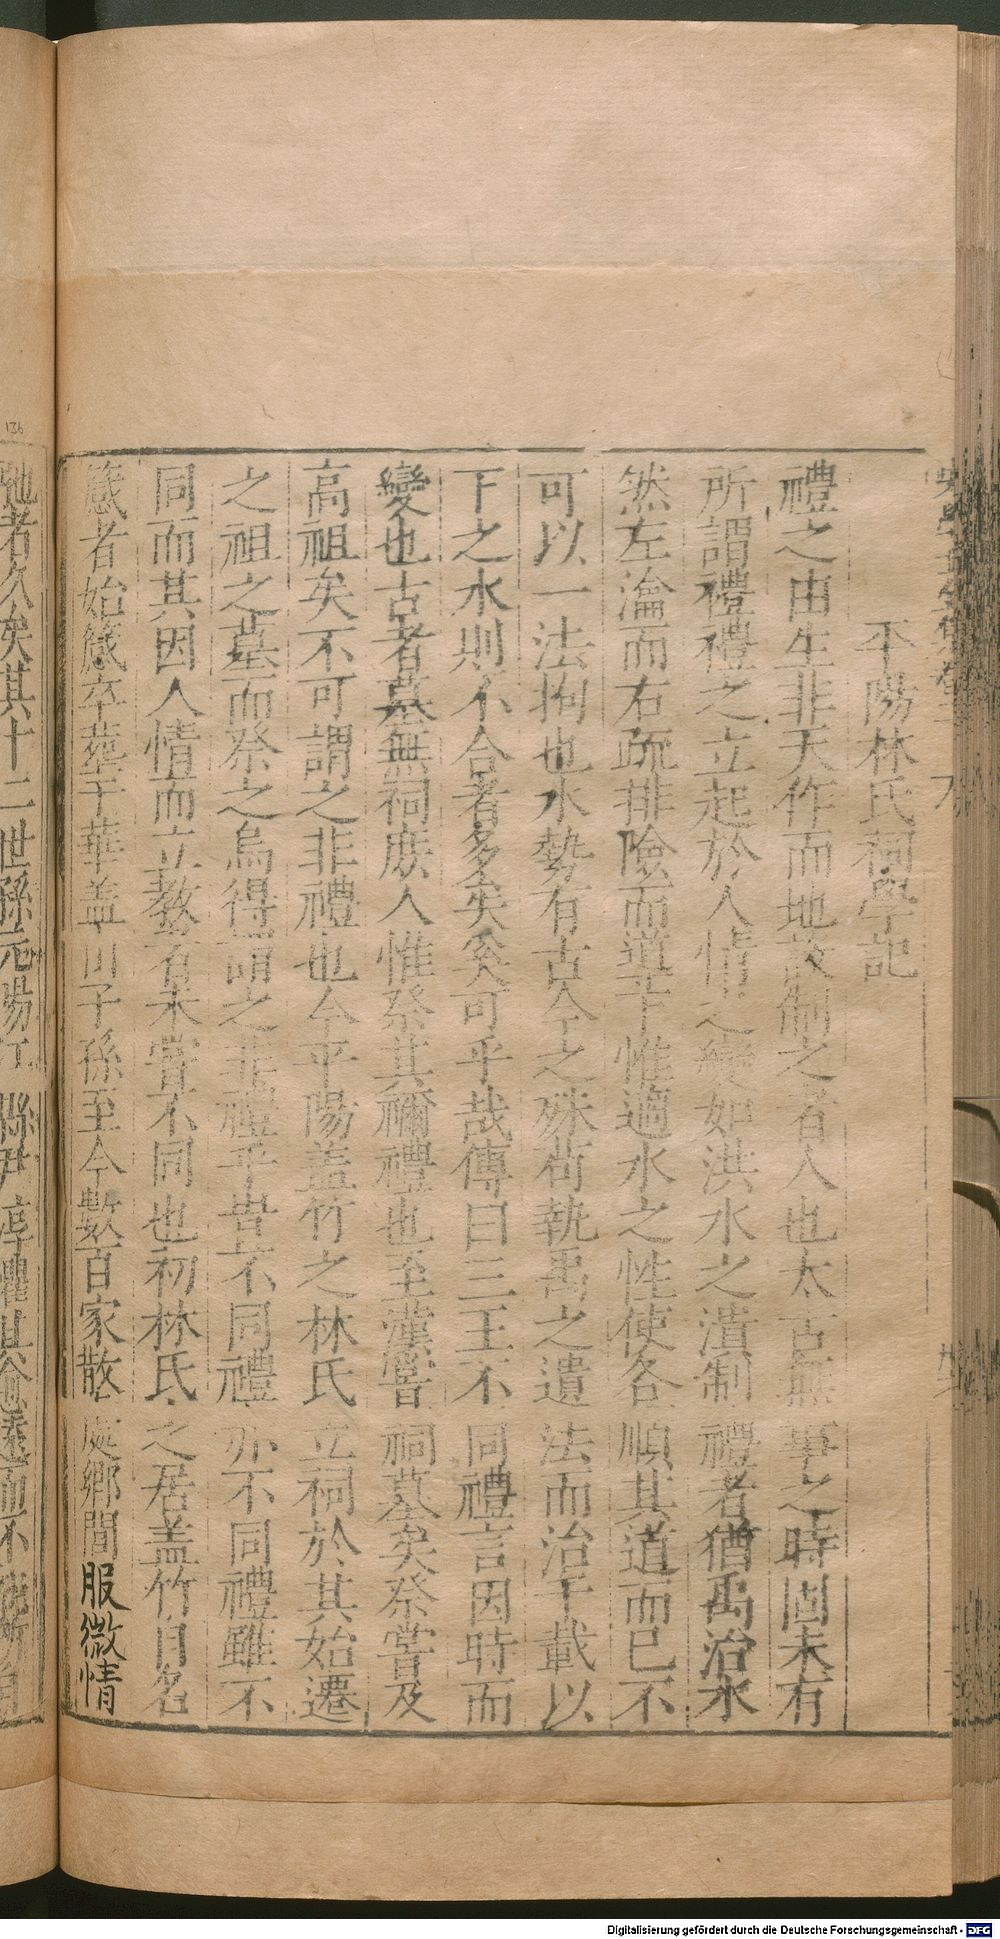 平陽林氏祠學記
禮之由生非天作而地設制之者人也太古無事之時固未有
所謂禮禮之立起於人情之變如洪水之潰制禮者猶禹治水
然左瀹而右疏排險而道平惟適水之性使各順其道而已不
可以一法拘也水勢有古今之殊苟執禹之遺法而治千載以
下之水則不合者多矣奚可乎哉傳曰三王不同禮言因時而
變也古者墓無祠庶人惟祭其禰禮也至漢嘗祠墓矣祭嘗及
高祖矣不可謂之非禮也今平陽蓋竹之林氏立祠於其始遷
之祖之墓而祭之烏得謂之非禮乎昔不同禮亦不同禮雖不
同而其因人情而立教者未嘗不同也初林氏之居盖竹自名
箴者始箴卒葬于華盖山子孫至今數百家散處鄉間服微情
弛者久矣其十二世孫元陽江縣尹淳
136
Digitalisierung gefördert durch die Deutsche Forschungsgemeinschaft - DFG